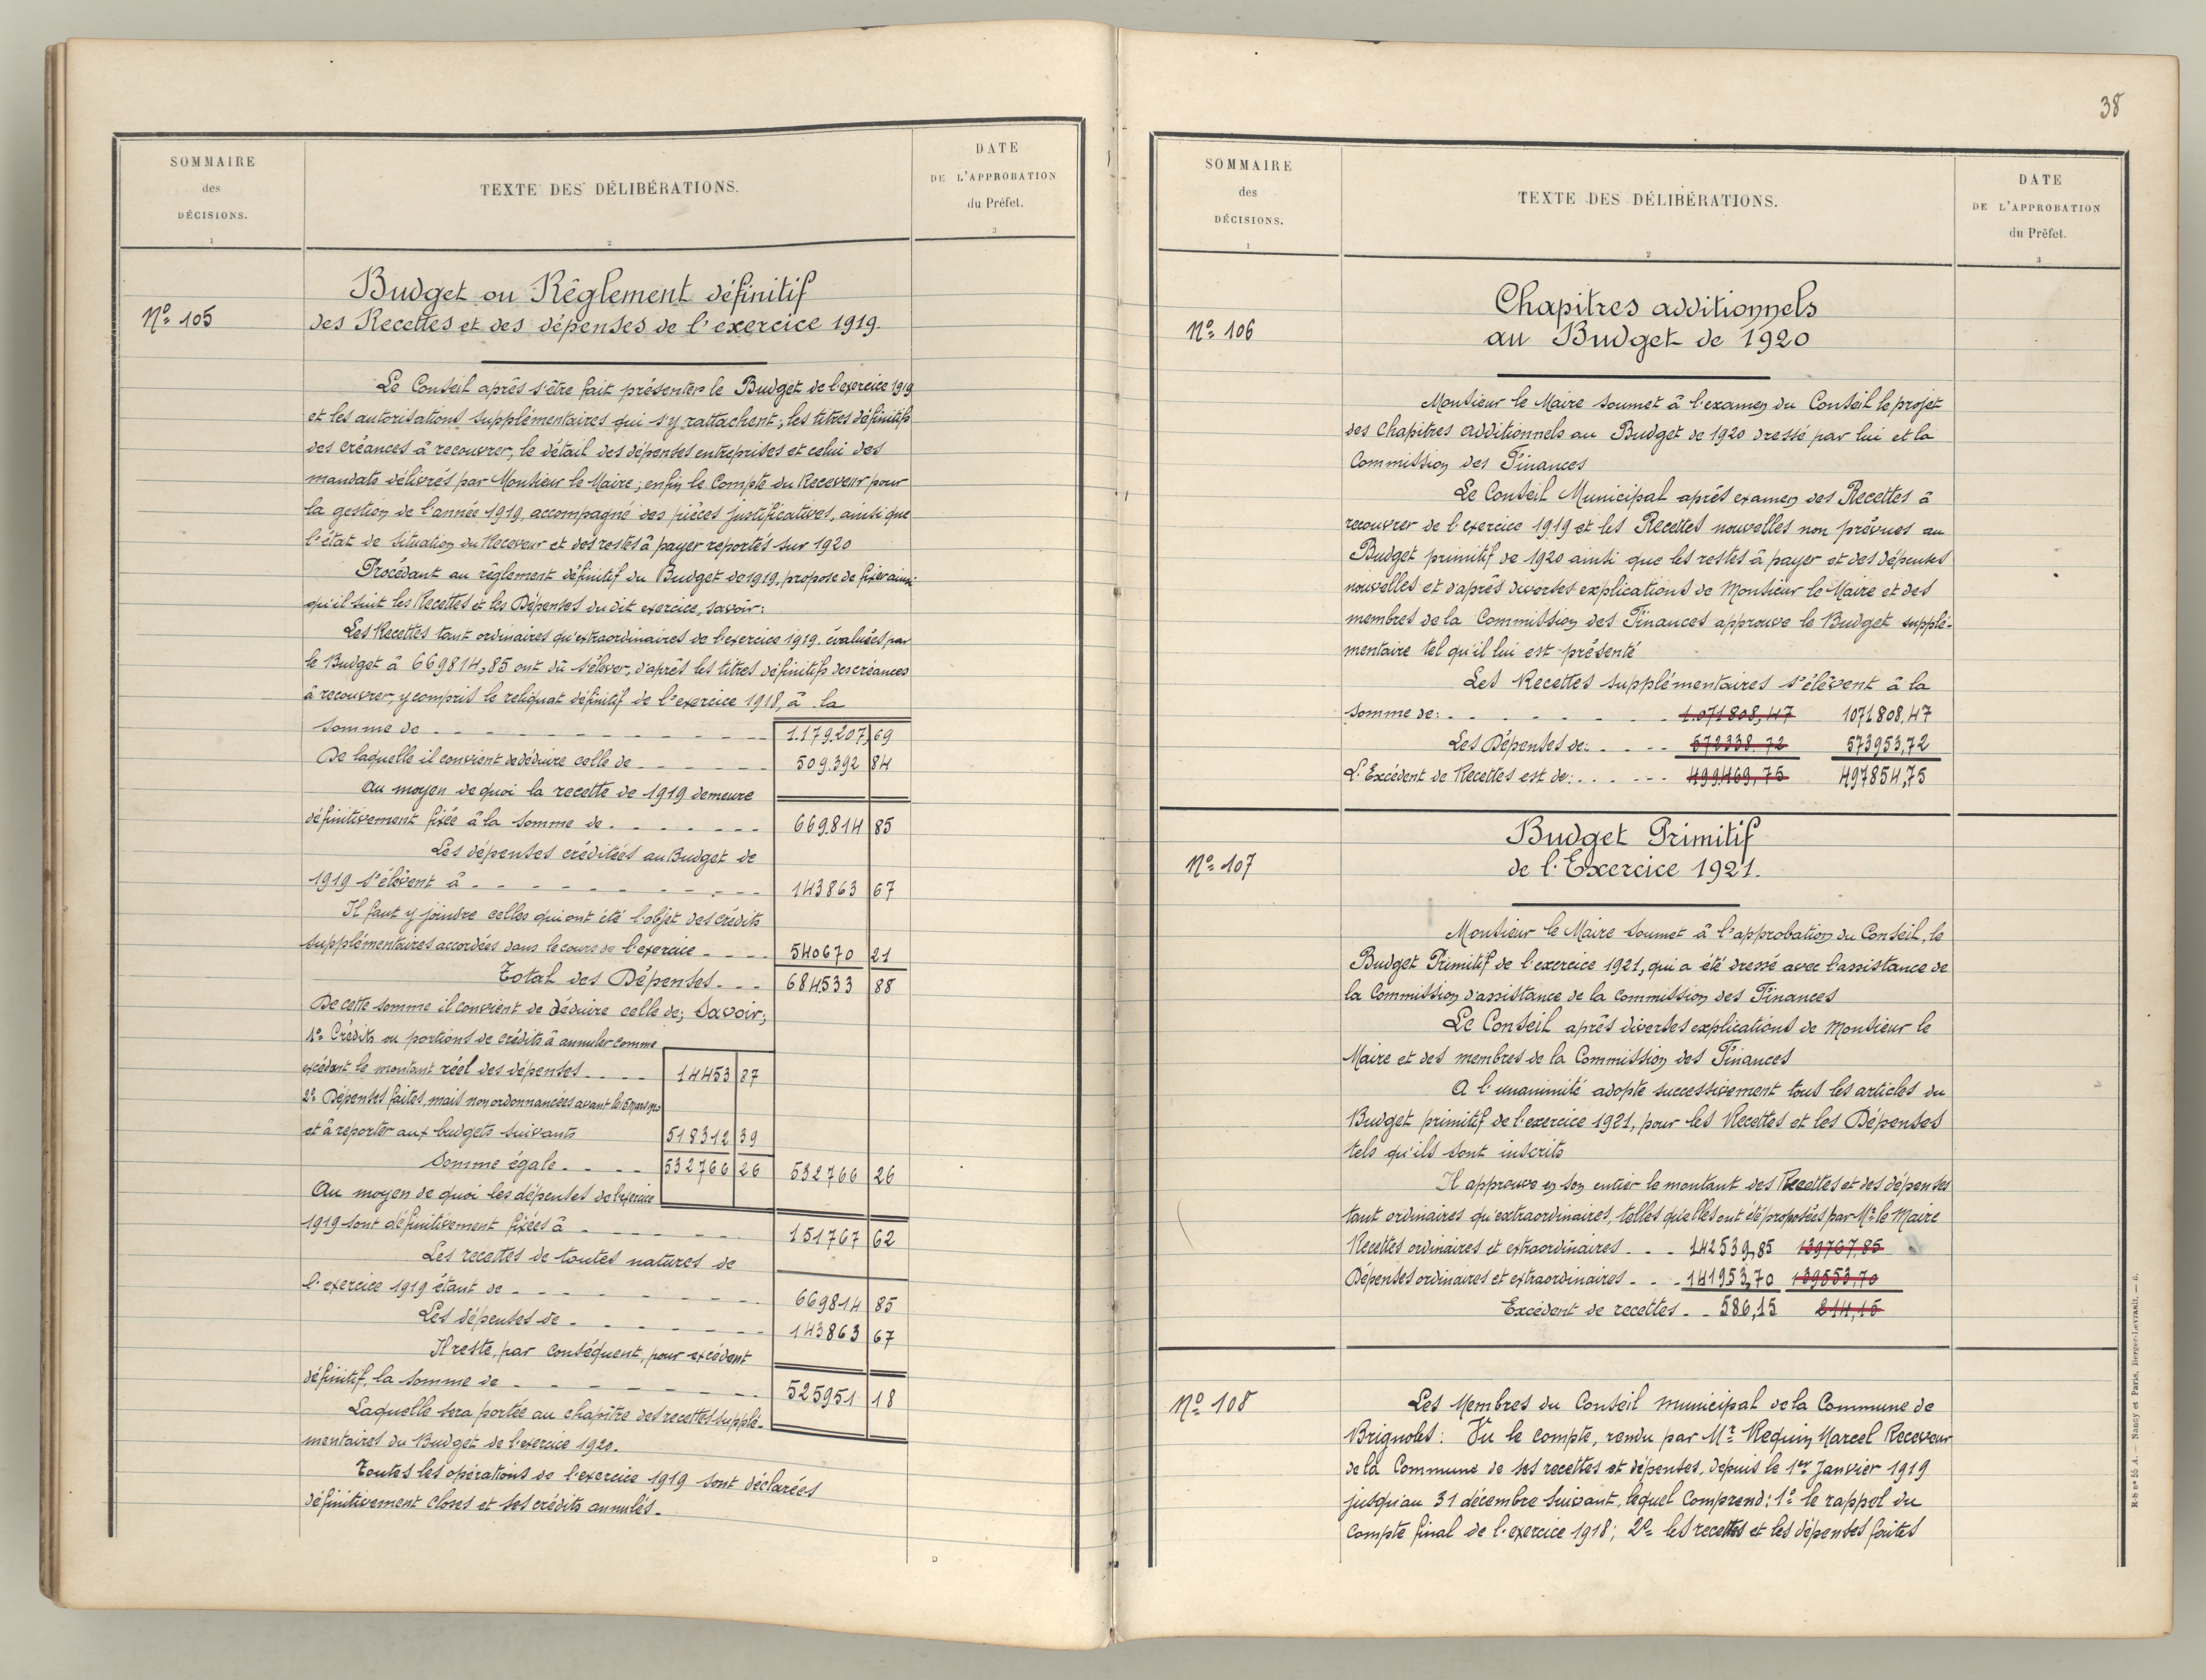 SOMMAIRE
des
DÉCISIONS.
1
TEXTE DES DÉLIBÉRATIONS.
2
DATE
DE L'APPROBATION
du Préfet.
3
Nº 105
Budget ou Règlement définitif
des Recettes et des dépenses de l'exercice 1919.
Le Conseil après s'être fait présenter le Budget de l'exercice 1919
et les autorisations supplémentaires qui s'y rattachent; les titres définitifs
des créances à recouvrer, le détail des dépenses entreprises et celui des
mandats délivrés par Monsieur le Maire; enfin le Compte du Receveur pour
la gestion de l'année 1919, accompagné des pièces justificatives, ainsi que
l'état de situation du Receveur et des restes à payer reportés sur 1920
Procédant au règlement définitif du Budget de 1919, propose de fixer ainsi
qu'il suit les Recettes et les Dépenses du dit exercice, savoir:
Les Recettes tant ordinaires qu'extraordinaires de l'exercice 1919. évaluées par
le Budget à 669814,85 ont dû s'élever, d'après les titres définitifs des créances
à recouvrer, y compris le reliquat définitif de l'exercice 1918, à la
somme de - - - - - - - - - - - 1.179.207,69
De laquelle il convient de déduire celle de - - - - - 509.392 84
Au moyen de quoi la recette de 1919 demeure
définitivement fixée à la somme de - - - - - - - 669.814 85
Les dépenses créditées au Budget de
1919 s'élèvent à - - - - - - - - - - 143863 67
Il faut y joindre celles qui ont été l'objet des crédits
supplémentaires accordées dans le cours de l'exercice - - - - 540670 21
Total des Dépenses - - - 684533 88
De cette somme il convient de déduire celle de; Savoir;
1º Crédits ou portions de crédits à annuler comme
excédent le montant réel des dépenses - - - - 14453 87
2º Dépenses faites, mais non ordonnancées avant le 15 mars 1920
et à reporter aux budgets suivants 518312 39
Somme égale - - - - 532766 26 532766 26
Au moyen de quoi les dépenses de l'exercice
1919 sont définitivement fixées à - - - - - - 151767 62
Les recettes de toutes natures de
l'exercice 1919 étant de - - - - - - - - - 669814 85
Les dépenses de - - - - - - - 143863 67
Il reste, par conséquent, pour excédent
définitif, la somme de - - - - - - - - - 525951 18
Laquelle sera portée au chapitre des recettes supplé-
mentaires du Budget de l'exercice 1920.
Toutes les opérations de l'exercice 1919 sont déclarées
définitivement closes et ses crédits annulés.
38
SOMMAIRE
des
DÉCISIONS.
1
TEXTE DES DÉLIBÉRATIONS.
2
DATE
DE L'APPROBATION
du Préfet.
3
Nº 106
Chapitres additionnels
au Budget de 1920
Monsieur le Maire soumet à l'examen du Conseil le projet
des Chapitres additionnels au Budget de 1920 dressé par lui et la
Commission des Finances
Le Conseil Municipal après examen des Recettes à
recouvrer de l'exercice 1919 et les Recettes nouvelles non prévues au
Budget primitif de 1920 ainsi que les restes à payer et des dépenses
nouvelles et d'après diverses explications de Monsieur le Maire et des
membres de la Commission des Finances approuve le Budget supplé-
mentaire tel qu'il lui est présenté
Les Recettes supplémentaires s'élèvent à la
somme de: - - - - - - - - 1.071808,47 1071808,47
Les Dépenses de: - - - - 572338.72 573953,72
L'Excédent de Recettes est de: - - - - - 499469,75 497854,75
Nº 107
Budget Primitif
de l'Exercice 1921.
Monsieur le Maire soumet à l'approbation du Conseil, le
Budget Primitif de l'exercice 1921, qui a été dressé avec l'assistance de
la Commission d'assistance de la commission des Finances
Le Conseil après diverses explications de Monsieur le
Maire et des membres de la Commission des Finances
A l'unanimité adopte successivement tous les articles du
Budget primitif de l'exercice 1921, pour les Recettes et les Dépenses
tels qu'ils sont inscrits
Il approuve en son entier le montant des Recettes et des dépenses
tant ordinaires qu'extraordinaires, telles quelles ont été proposées par Mr le Maire
Recettes ordinaires et extraordinaires - - - 142539,85 139767,85
Dépenses ordinaires et extraordinaires - - - 141953,70 139553,70
Excédent de recettes - - 586,15 214,15
Nº 108
Les Membres du Conseil Municipal de la Commune de
Brignoles: Vu le compte, rendu par Mr Requin Marcel Receveur
de la Commune de ses recettes et dépenses, depuis le 1er Janvier 1919
jusqu'au 31 décembre suivant, lequel comprend: 1º le rappel du
compte final de l'exercice 1918; 2º les recettes et les dépenses faites
R-S nº 55 A. — Nancy et Paris, Berger-Levrault. — 6.